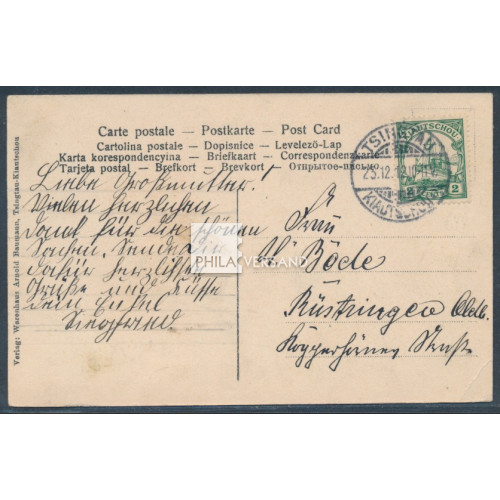 Carte postale — Postkarte — Post Card
Cartolina postale — Dopisnice — Levelezö-Lap
Karta korespondencyina — Briefkaart — Correspondenzkarte
Tarjeta postal — Brefkort — Brevkort — Открытое письмо
TSINGTAU
KIAUTSCHOU
KIAUTSCHOU
2
Liebe Großmutter!
Vielen herzlichen
Dank für die schönen
Sachen. Sende Dir
dafür herzliche
Grüße und Küsse
dein Enkel
Siegfried
Frau
Böde
Rüstringen Oldb.
PHILA VERBAND
Verlag: Warenhaus Arnold Baumann, Tsingtau-Kiautschou